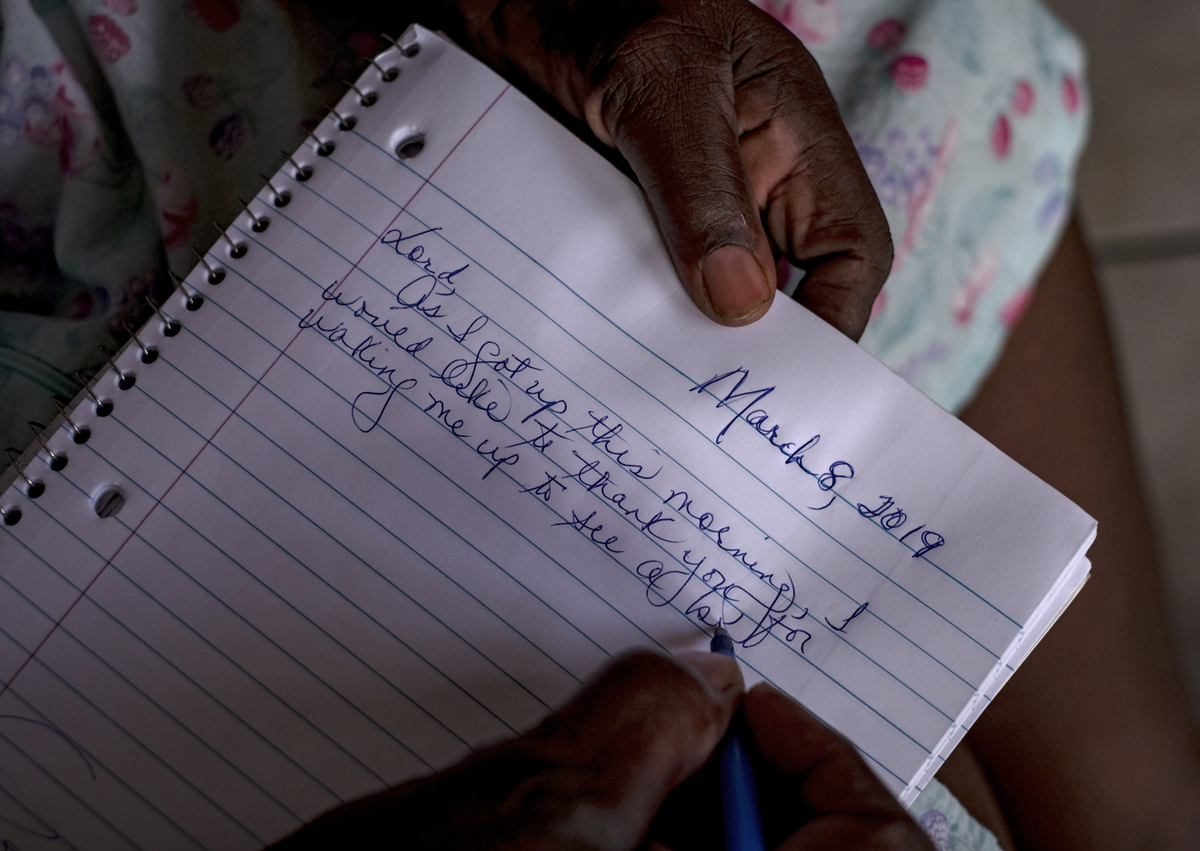 March 8, 2019
Lord,
As I got up this morning, I
would like to thank you for
waking me up to see a